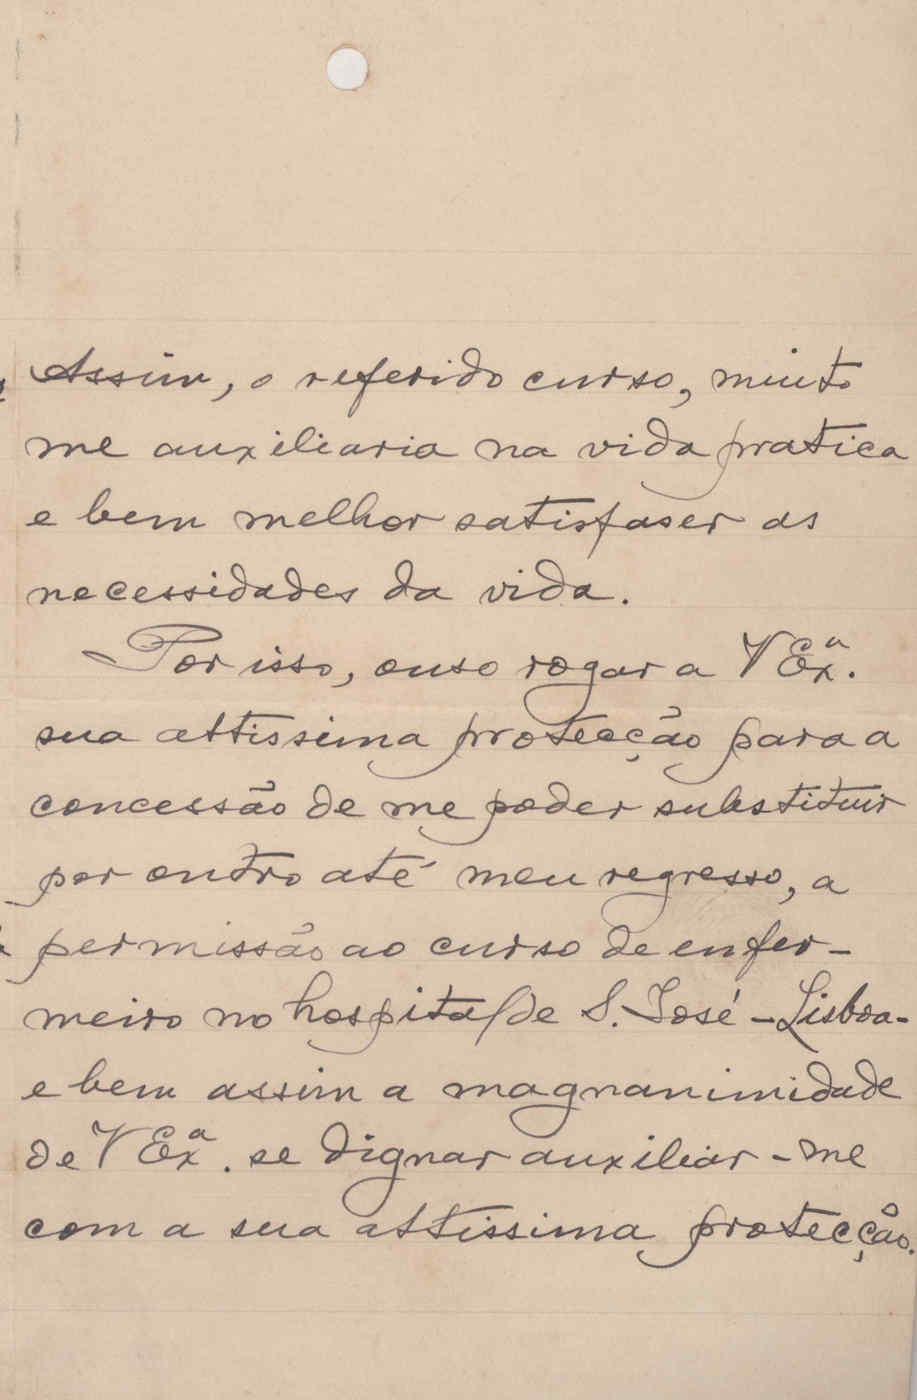 Assim, o referido curso, muito
me auxiliaria na vida pratica
e bem melhor satisfaser as
necessidades da vida.
Por isso, ouso rogar a V Exª.
sua altissima protecção para a
concessão de me poder substituir
por outro até meu regresso, a
permissão ao curso de enfer-
meiro no hospital de S. José - Lisboa -
e bem assim a magnanimidade
de V Exª. se dignar auxiliar-me
com a sua altissima protecção.